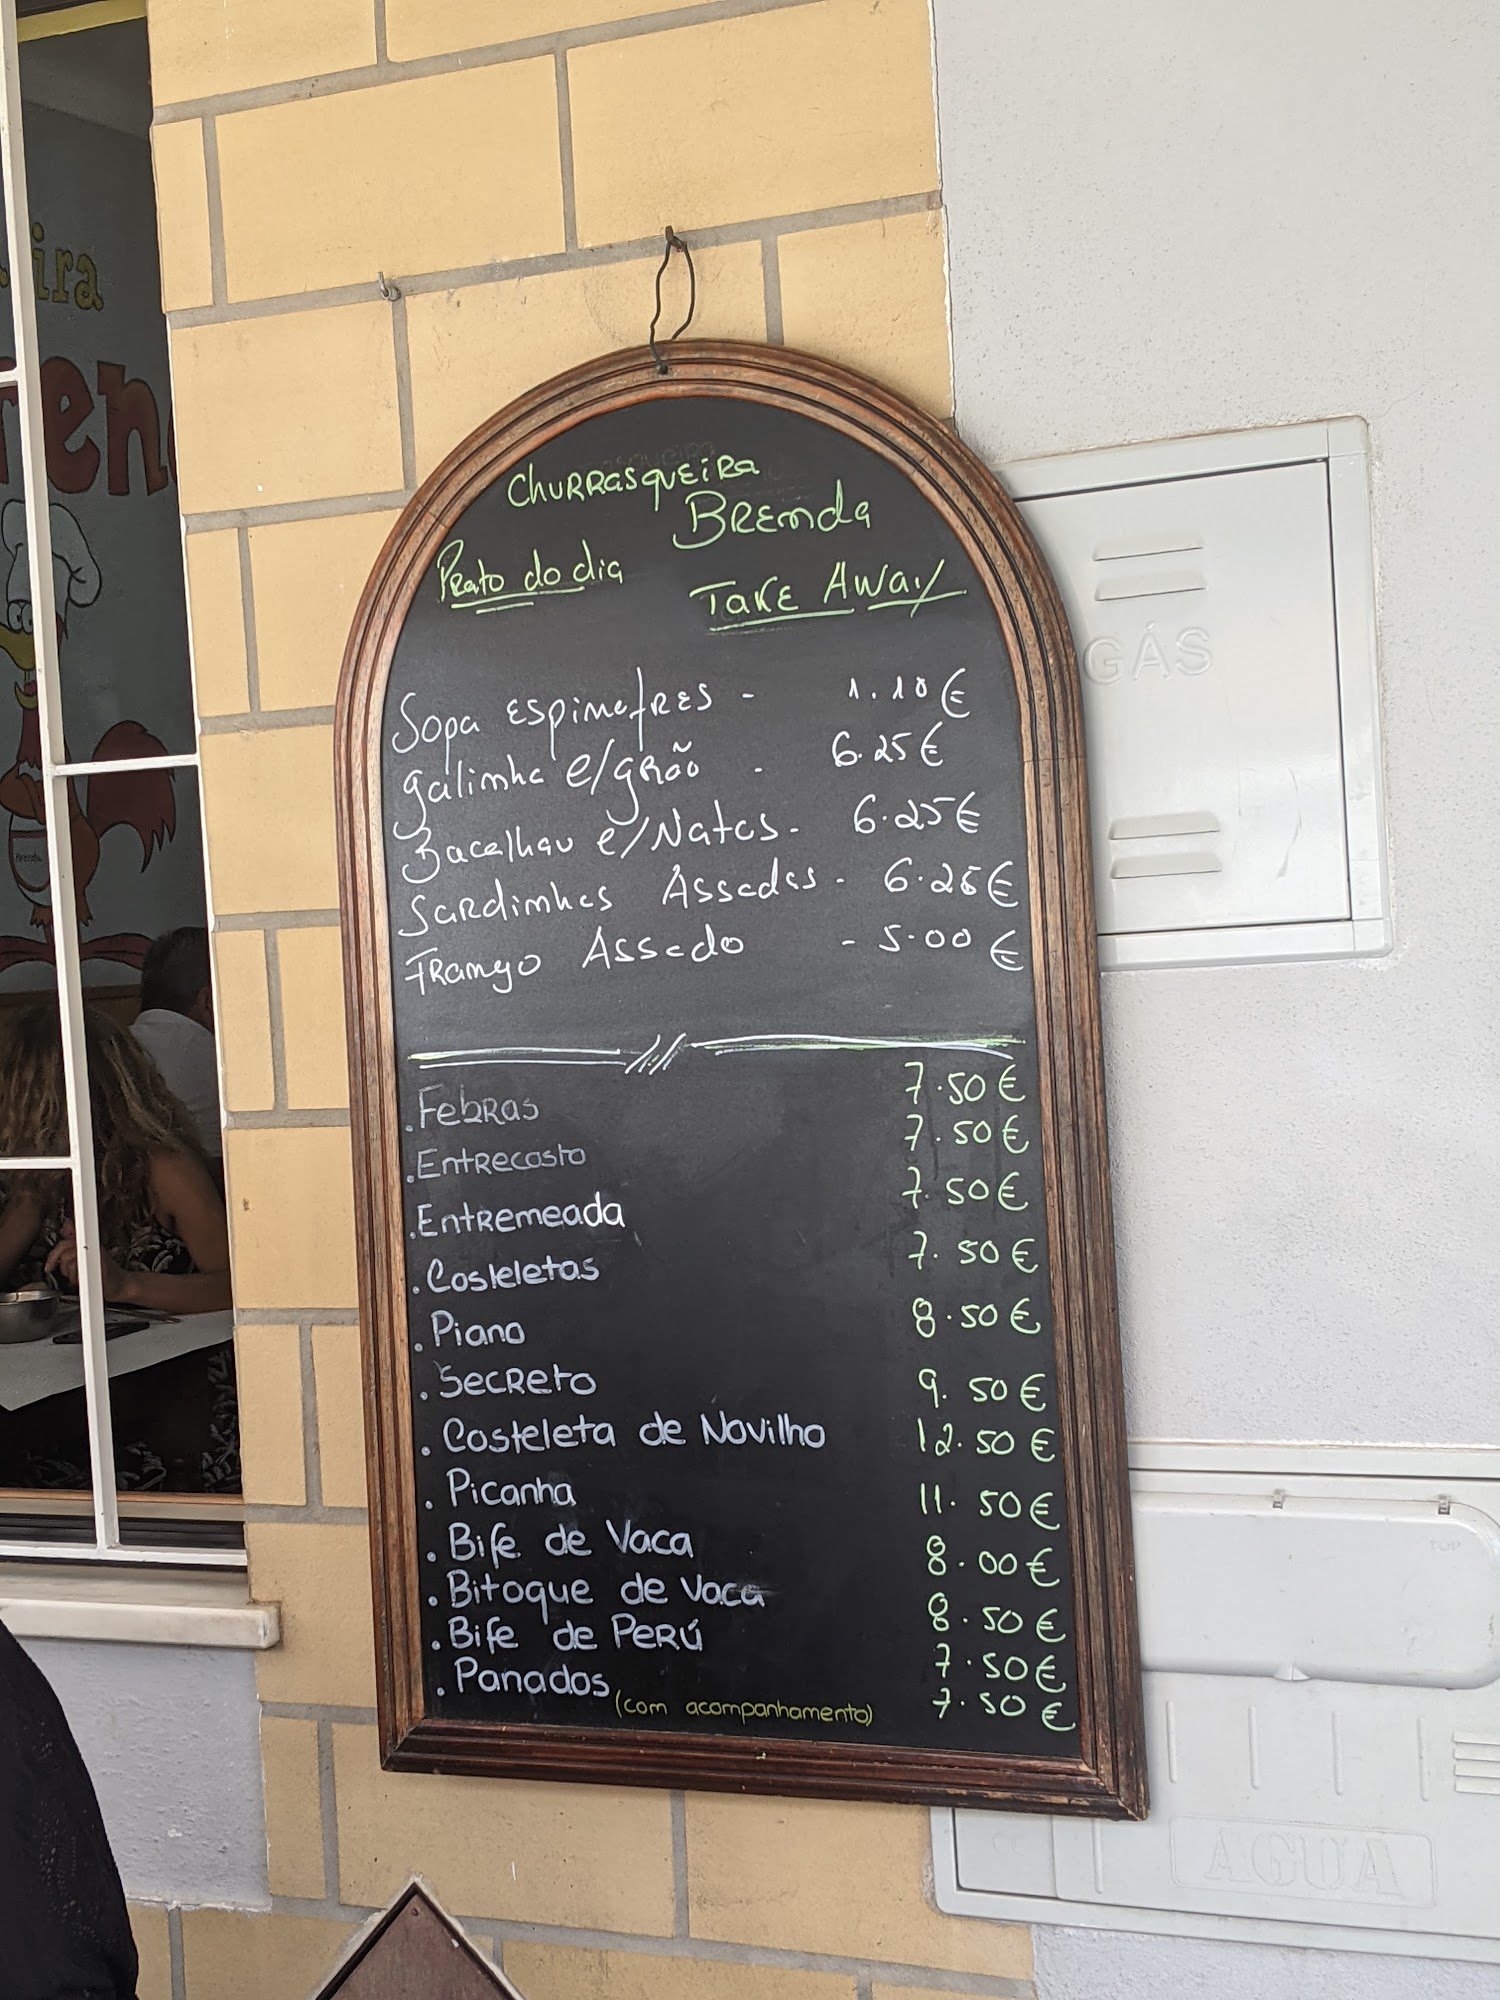 Churrasqueira
Brenda
Prato do dia
Take Away
Sopa Espinafres - 1.10€
Galinha c/grão - 6.25€
Bacalhau c/Natas - 6.25€
Sardinhas Assadas - 6.25€
Frango Assado - 5.00€
.Febras 7.50€
.Entrecosto 7.50€
.Entremeada 7.50€
.Costeletas 7.50€
.Piano 8.50€
.Secreto 9.50€
.Costeleta de Novilho 12.50€
.Picanha 11.50€
.Bife de Vaca 8.00€
.Bitoque de Vaca 8.50€
.Bife de Perú 7.50€
.Panados 7.50€
(com acompanhamento)
GÁS
ÁGUA
Brenda